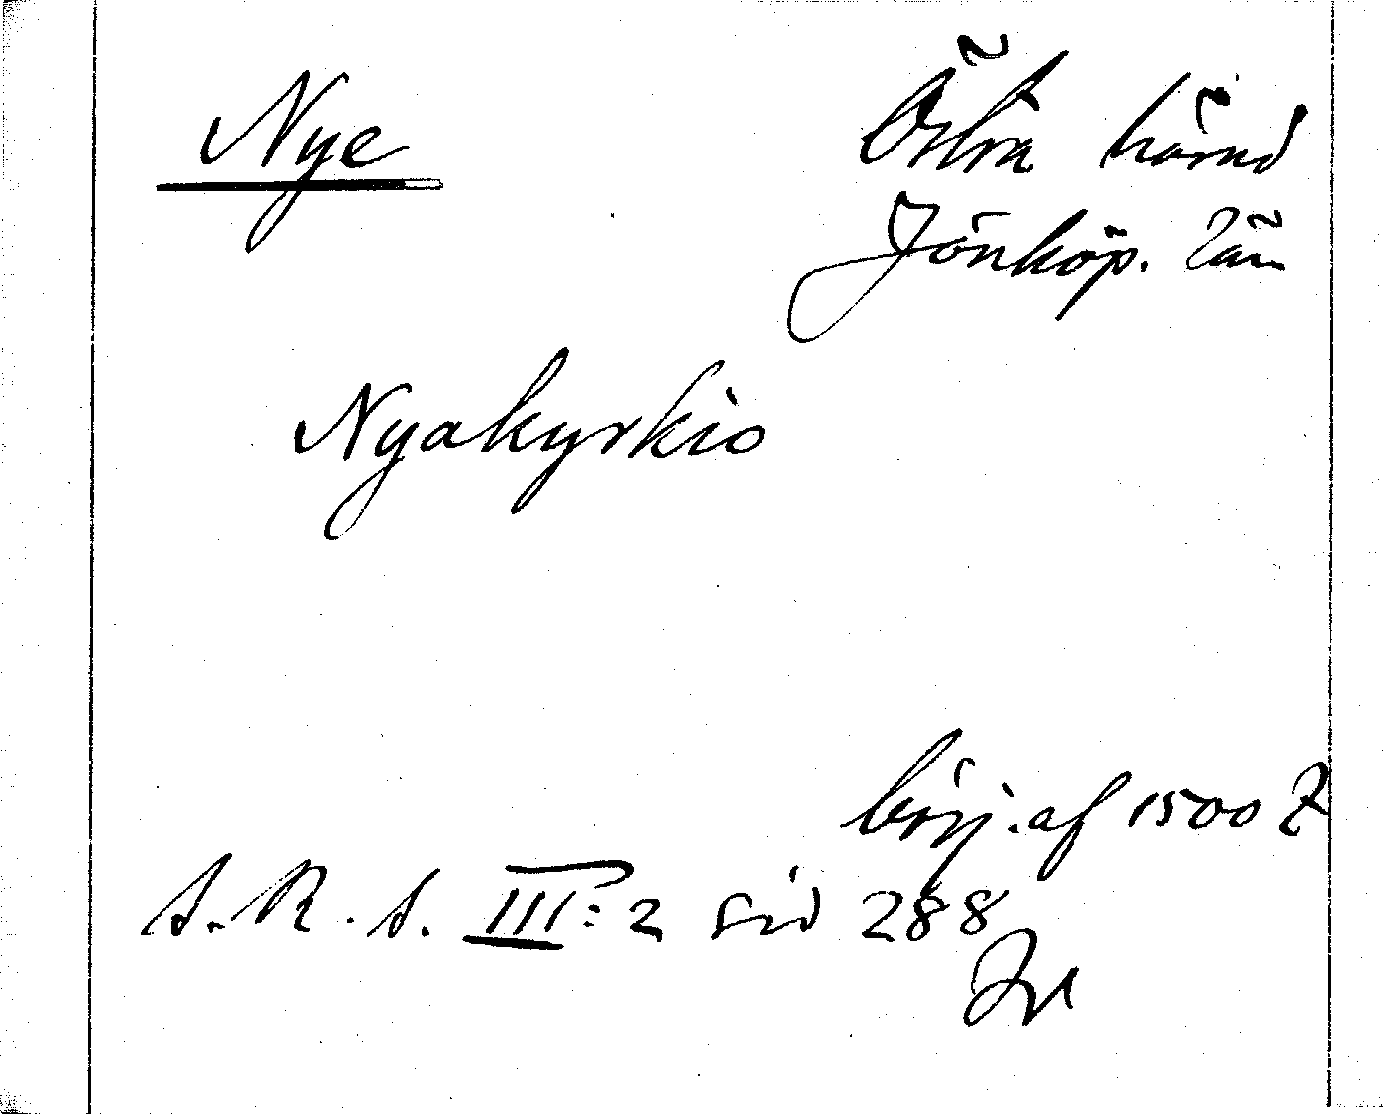 Nye
Östra härad
Jönköp. län
Nyakyrkio
börj. af 1500 t
S. R. S. III: 2 sid 288